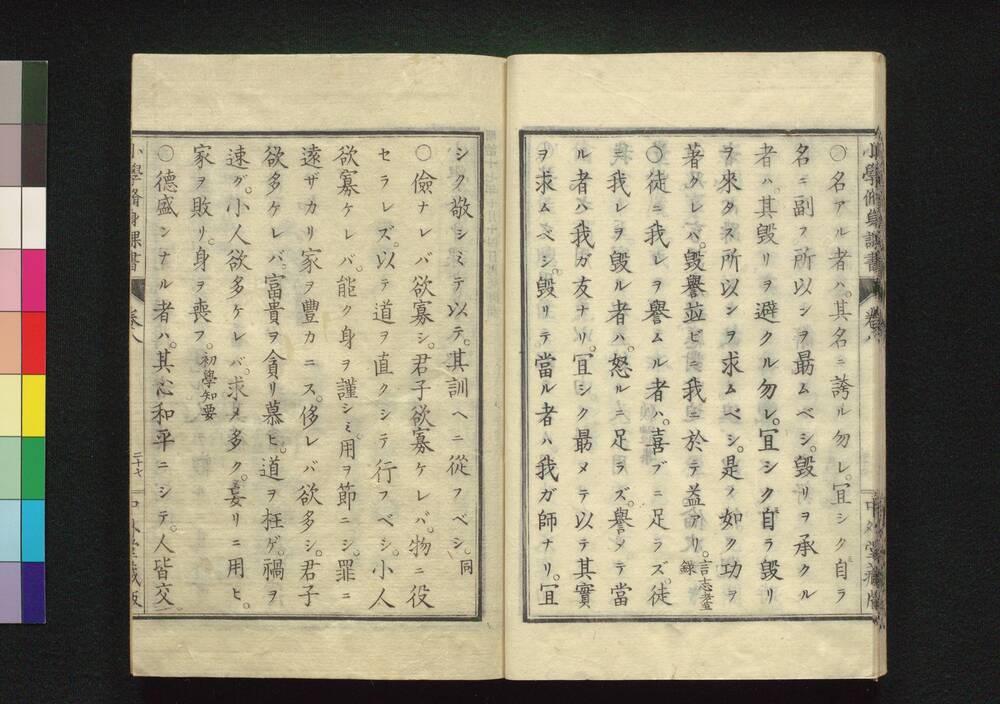 小學修身課書 卷八 中外堂藏版
○名アル者ハ。其名ニ誇ル勿レ。宜シク自ラ
名ニ副フ所以ンヲ勗ムベシ。毀リヲ承クル
者ハ。其毀リヲ避クル勿レ。宜シク自ラ毀リ
ヲ來タス所以ンヲ求ムベシ。是ノ如ク功ヲ
著クレバ。毀譽竝ビニ我ニ於テ益アリ。言志耋錄
○徒ニ我レヲ譽ムル者ハ。喜ブニ足ラズ。徒
ニ我レヲ毀ル者ハ。怒ルニ足ラズ。譽メテ當
ル者ハ我ガ友ナリ。宜シク勗メテ以テ其實
ヲ求ムベシ。毀リテ當ル者ハ我ガ師ナリ。宜
シク敬シミテ以テ。其訓ヘニ從フベシ。同
○儉ナレバ欲寡シ。君子欲寡ケレバ。物ニ役
セラレズ。以テ道ヲ直クシテ行フベシ。小人
欲寡ケレバ。能ク身ヲ謹シミ。用ヲ節ニシ。罪ニ
遠ザカリ家ヲ豐カニス。侈レバ欲多シ。君子
欲多ケレバ。富貴ヲ貪リ慕ヒ。道ヲ枉ゲ。禍ヲ
速グ。小人欲多ケレバ。求メ多ク。妄リニ用ヒ。
家ヲ敗リ。身ヲ喪フ。初學知要
○德盛ンナル者ハ。其心和平ニシテ。人皆交
小學脩身課書 卷八 二十七 中外堂藏版